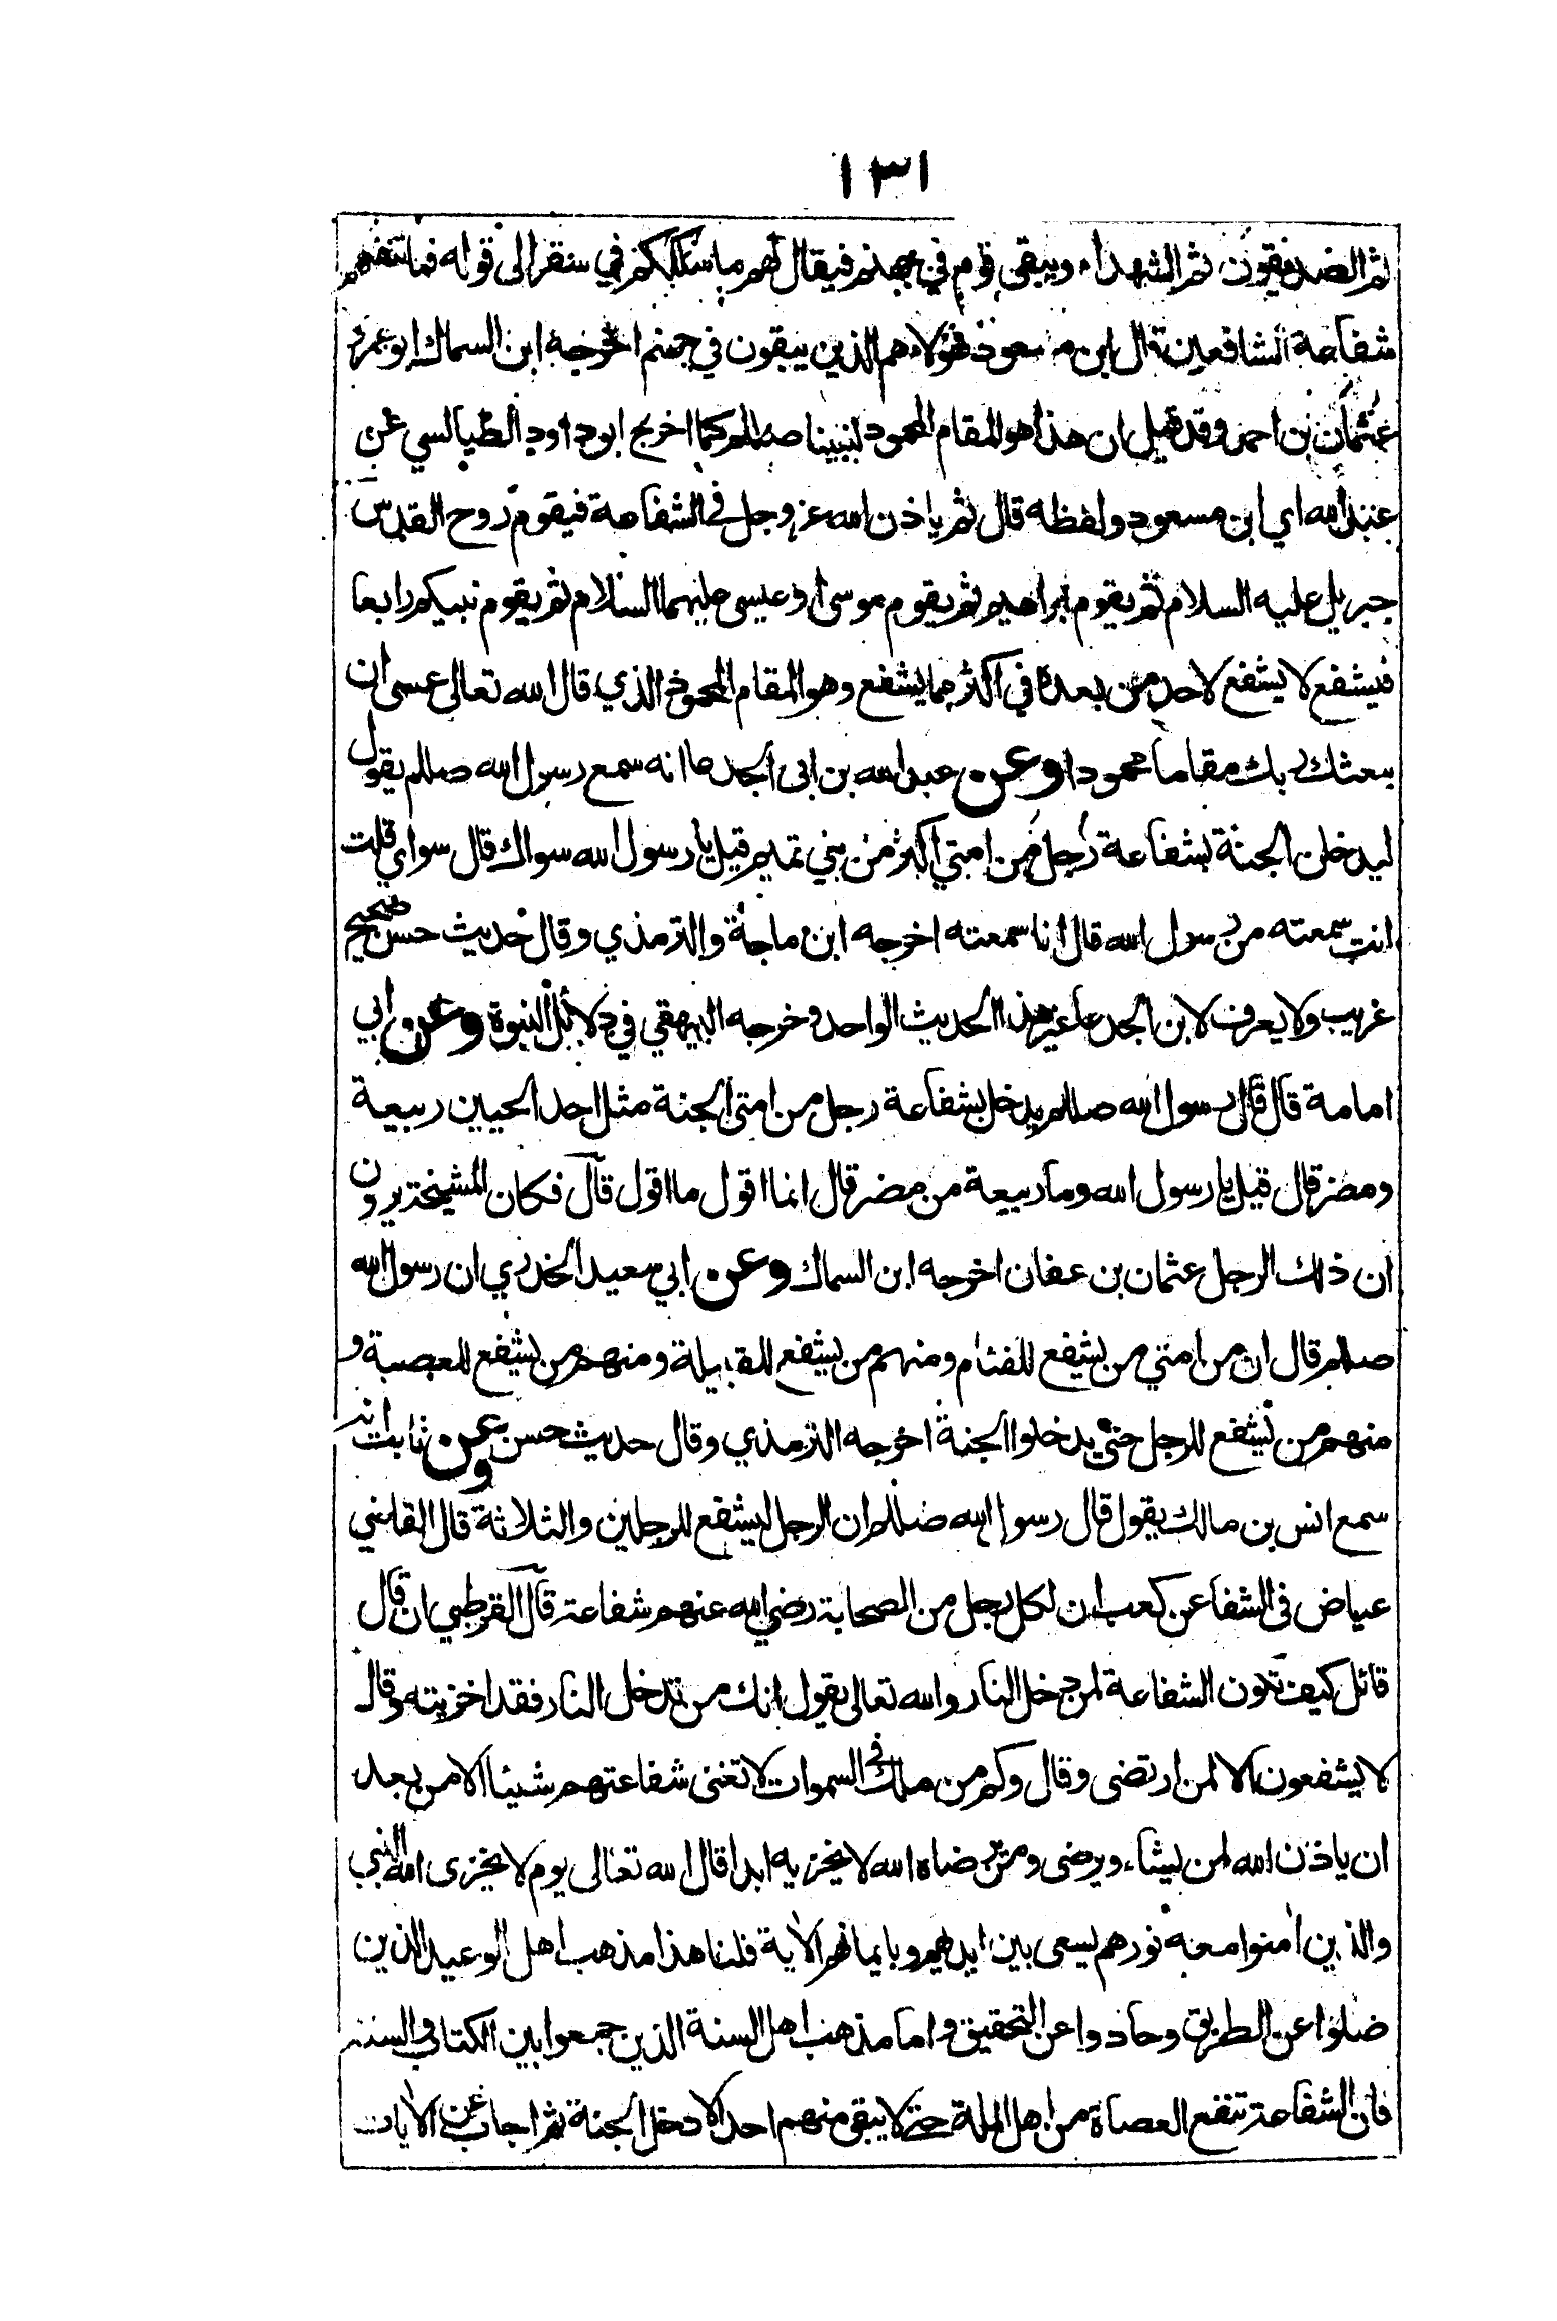 ١٣١
ثم الصديقون ثم الشهداء ويبقى قوم في جهنم فيقال لهم ما سلككم في سقر الى قوله فما تنفعهم
شفاعة الشافعين قال ابن مسعود فهؤلاء هم الذين يبقون في جهنم اخرجه ابن السماك ابو عمرو
عثمان بن احمد وقد قيل ان هذا هو المقام المحمود لنبينا صللم كما اخرج ابو داود الطيالسي عن
عبد الله اي ابن مسعود ولفظه قال ثم ياذن الله عز وجل في الشفاعة فيقوم روح القدس
جبريل عليه السلام ثم يقوم ابراهيم ثم يقوم موسى او عيسى عليهما السلام ثم يقوم نبيكم رابعا
فيشفع لا يشفع لاحد من بعده في اكثر مما يشفع وهو المقام المحمود الذي قال الله تعالى عسى ان
يبعثك ربك مقاما محمودا وعن عبد الله بن ابي الجدعا انه سمع رسول الله صللم يقول
ليدخلن الجنة بشفاعة رجل من امتي اكثر من بني تميم قيل يا رسول الله سواك قال سواي قلت
انت سمعته من رسول الله قال انا سمعته اخرجه ابن ماجة والترمذي وقال حديث حسن صحيح
غريب ولا يعرف لابن الجدعا غير هذا الحديث الواحد وخرجه البيهقي في دلائل النبوة وعن ابي
امامة قال قال رسول الله صللم يدخل بشفاعة رجل من امتي الجنة مثل احد الحيين ربيعة
ومضر قال قيل يا رسول الله وما ربيعة من مضر قال انما اقول ما اقول قال فكان المشيخة يرون
ان ذلك الرجل عثمان بن عفان اخرجه ابن السماك وعن ابي سعيد الخدري ان رسول الله
صللم قال ان من امتي من يشفع للفئام ومنهم من يشفع للقبيلة ومنهم من يشفع للعصبة و
منهم من يشفع للرجل حتى يدخلوا الجنة اخرجه الترمذي وقال حديث حسن وعن ثابت انه
سمع انس بن مالك يقول قال رسول الله صللم ان الرجل ليشفع للرجلين والثلاثة قال القاضي
عياض في الشفا عن كعب ان لكل رجل من الصحابة رضي الله عنهم شفاعة قال القرطبي ان قال
قائل كيف تكون الشفاعة لمن دخل النار والله تعالى يقول انك من تدخل النار فقد اخزيته وقال
لا يشفعون الا لمن ارتضى وقال وكم من ملك في السموات لا تغنى شفاعتهم شيئا الا من بعد
ان ياذن الله لمن يشاء ويرضى ومن ارضاه الله لا يخزيه ابدا قال الله تعالى يوم لا يخزى الله النبي
والذين امنوا معه نورهم يسعى بين ايديهم وبايمانهم الاية قلنا هذا مذهب اهل الوعيد الذين
ضلوا عن الطريق وحادوا عن التحقيق واما مذهب اهل السنة الذين جمعوا بين الكتاب والسنة
فان الشفاعة تنفع العصاة من اهل الملة حتى لا يبقى منهم احد الا دخل الجنة ثم اجاب عن الايات